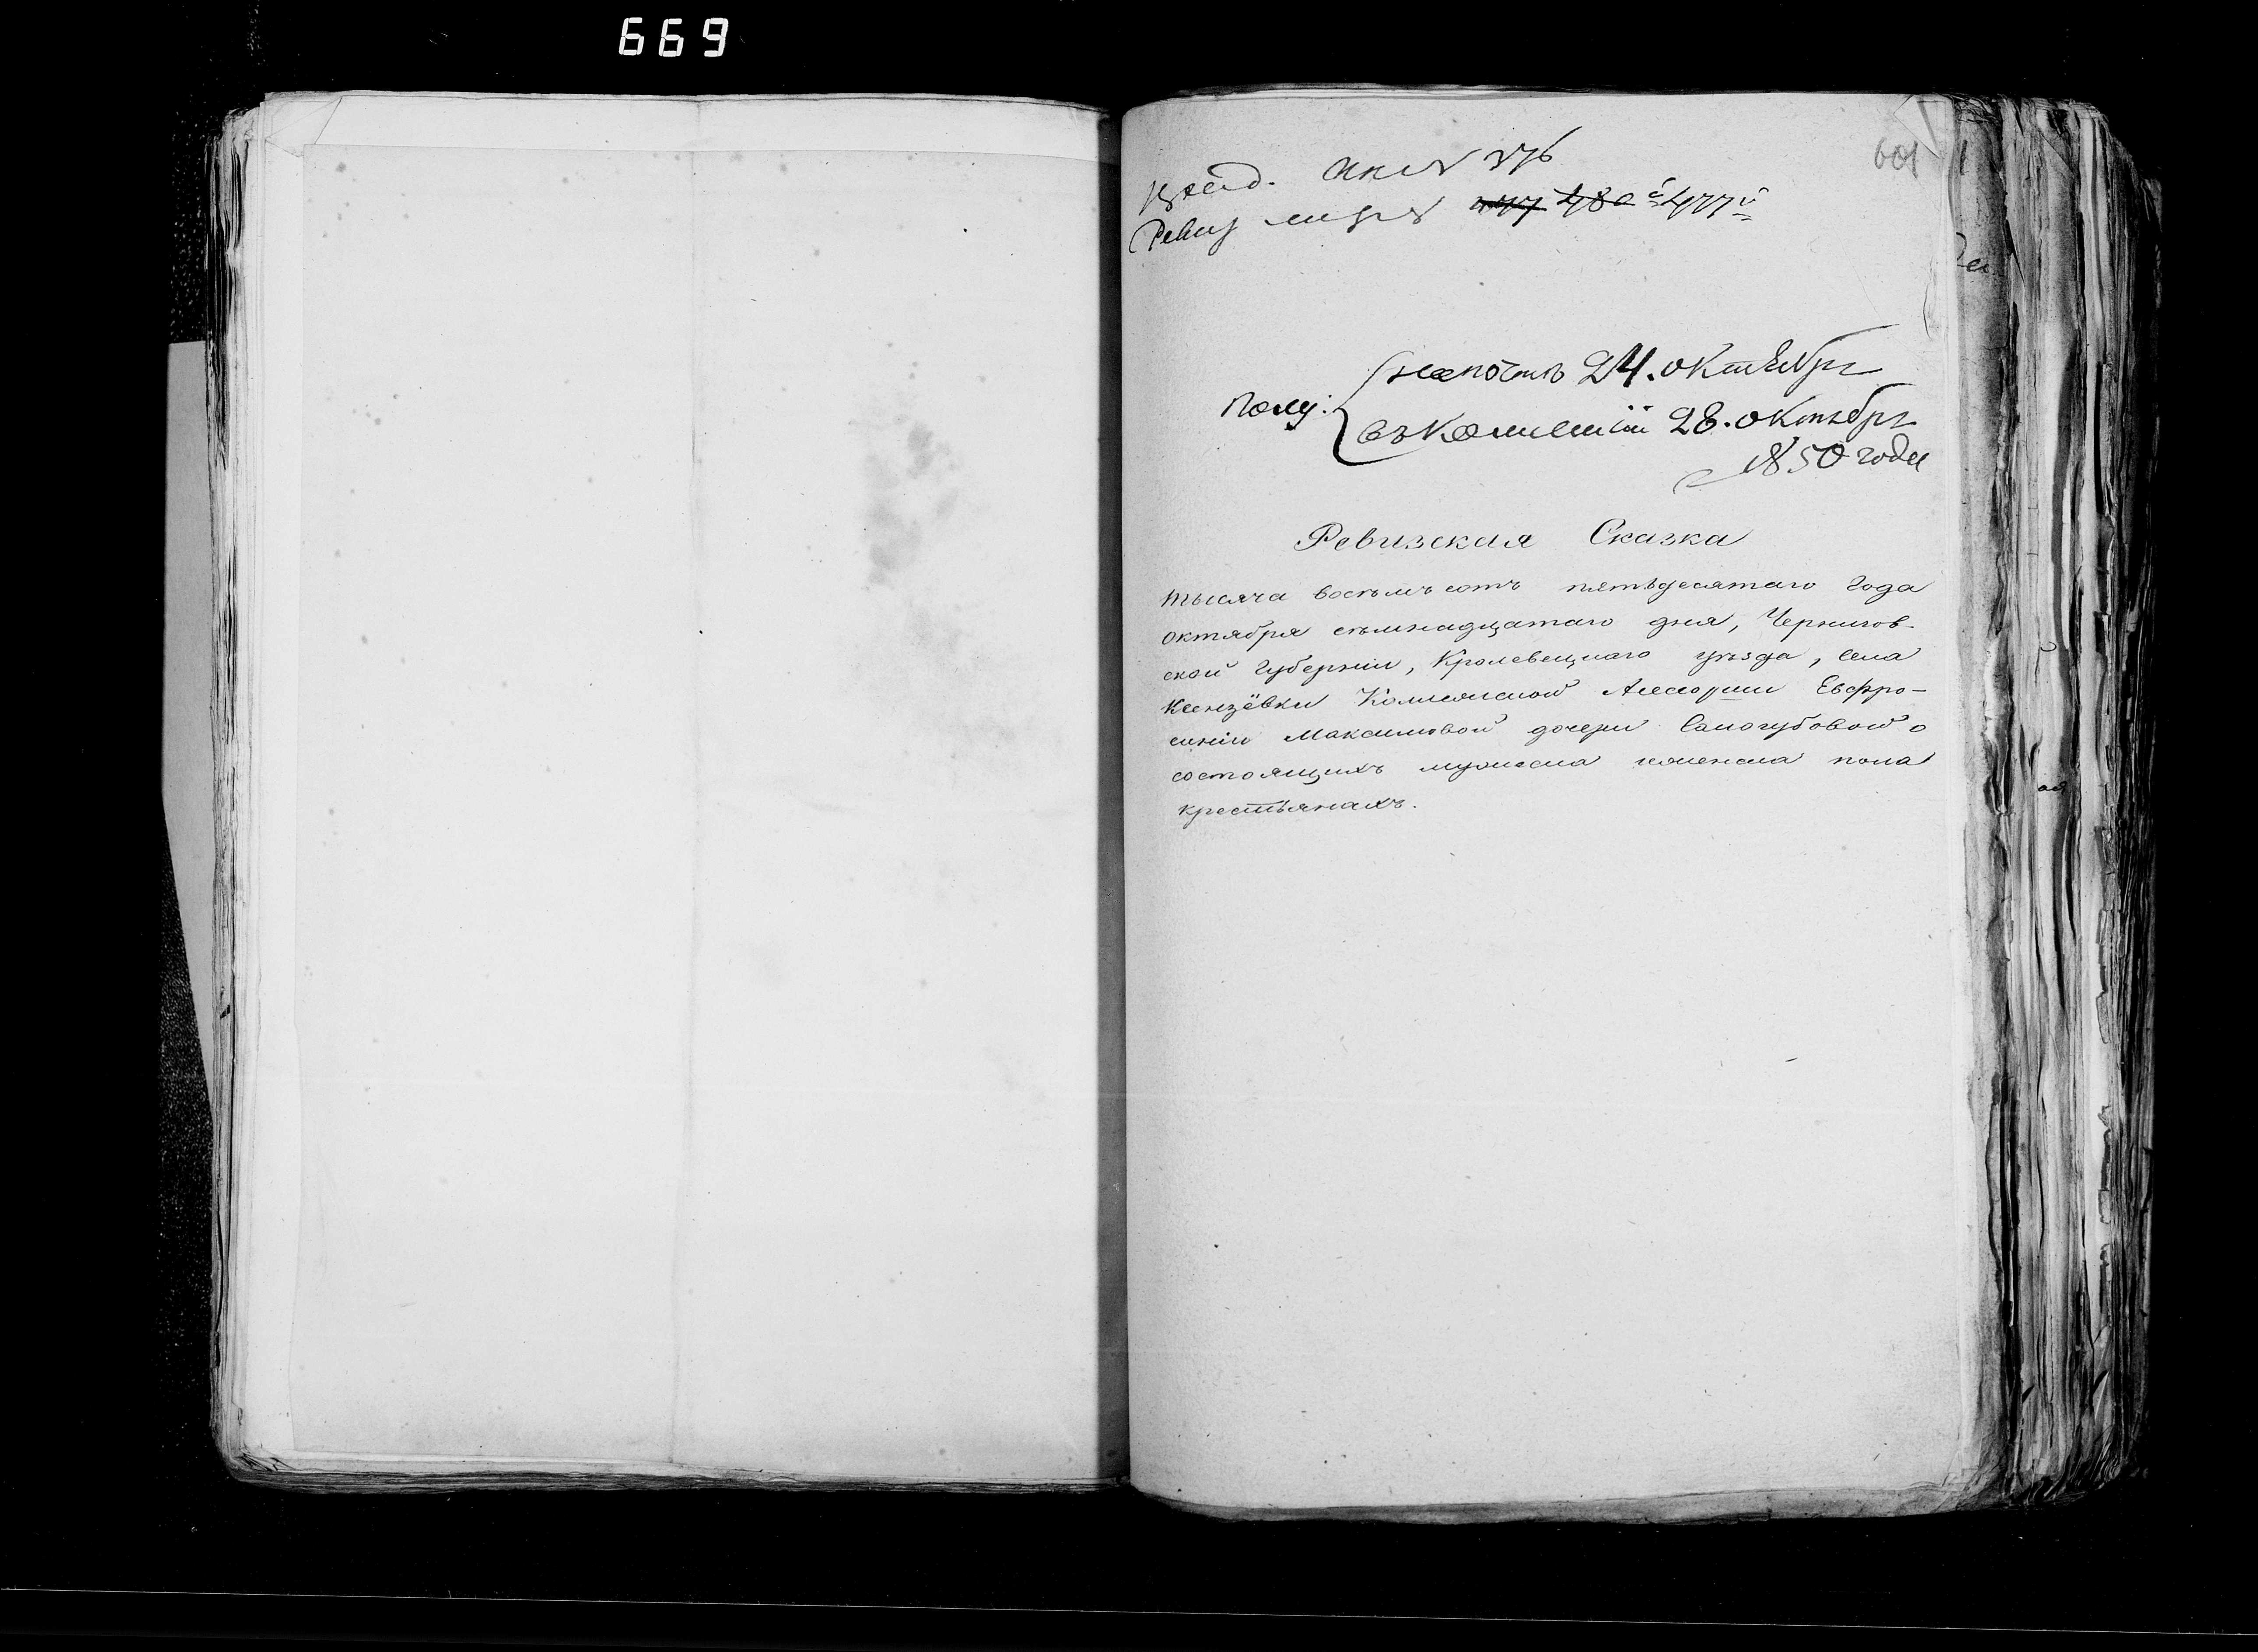 669
601
376
Ревиз 477 480 477
Полу: на почтѣ 24. октября
въ комисіи 28. октября
1850 года
Ревизская Сказка
тысяча восѣмъ сотъ пятьдесятаго года
октября семнадцатаго дня, Чернигов-
ской губерніи, Кролевецкаго уѣзда, села
Ксензёвки Коллежской Ассесорши Евфро-
синіи Максимовой дочери Самогубовой о
состоящихъ мужеска женска пола
крестьянахъ.